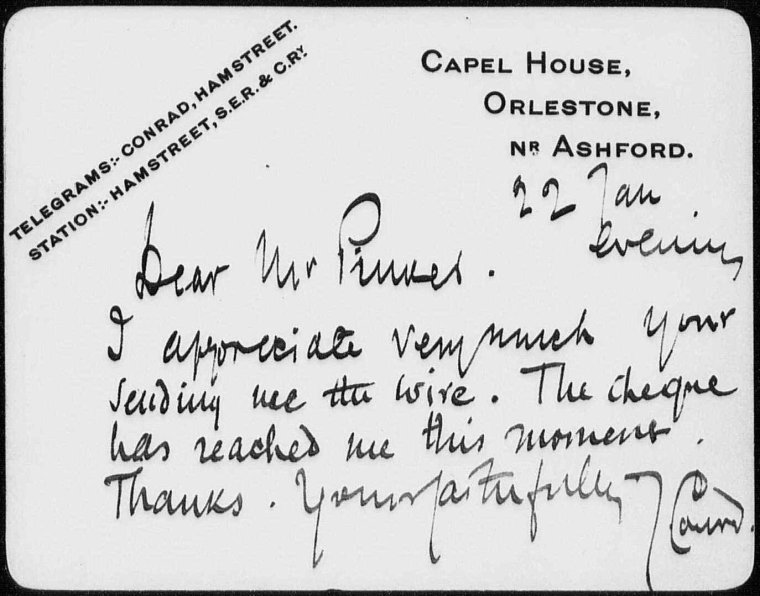 TELEGRAMS:- CONRAD, HAMSTREET.
STATION:- HAMSTREET, S.E.R. & C.RY.
CAPEL HOUSE,
ORLESTONE,
NR ASHFORD.
22 Jan
evening
Dear Mr Pinker.
I appreciate very much your
sending me the wire. The cheque
has reached me this moment.
Thanks. Yours faithfully J Conrad.